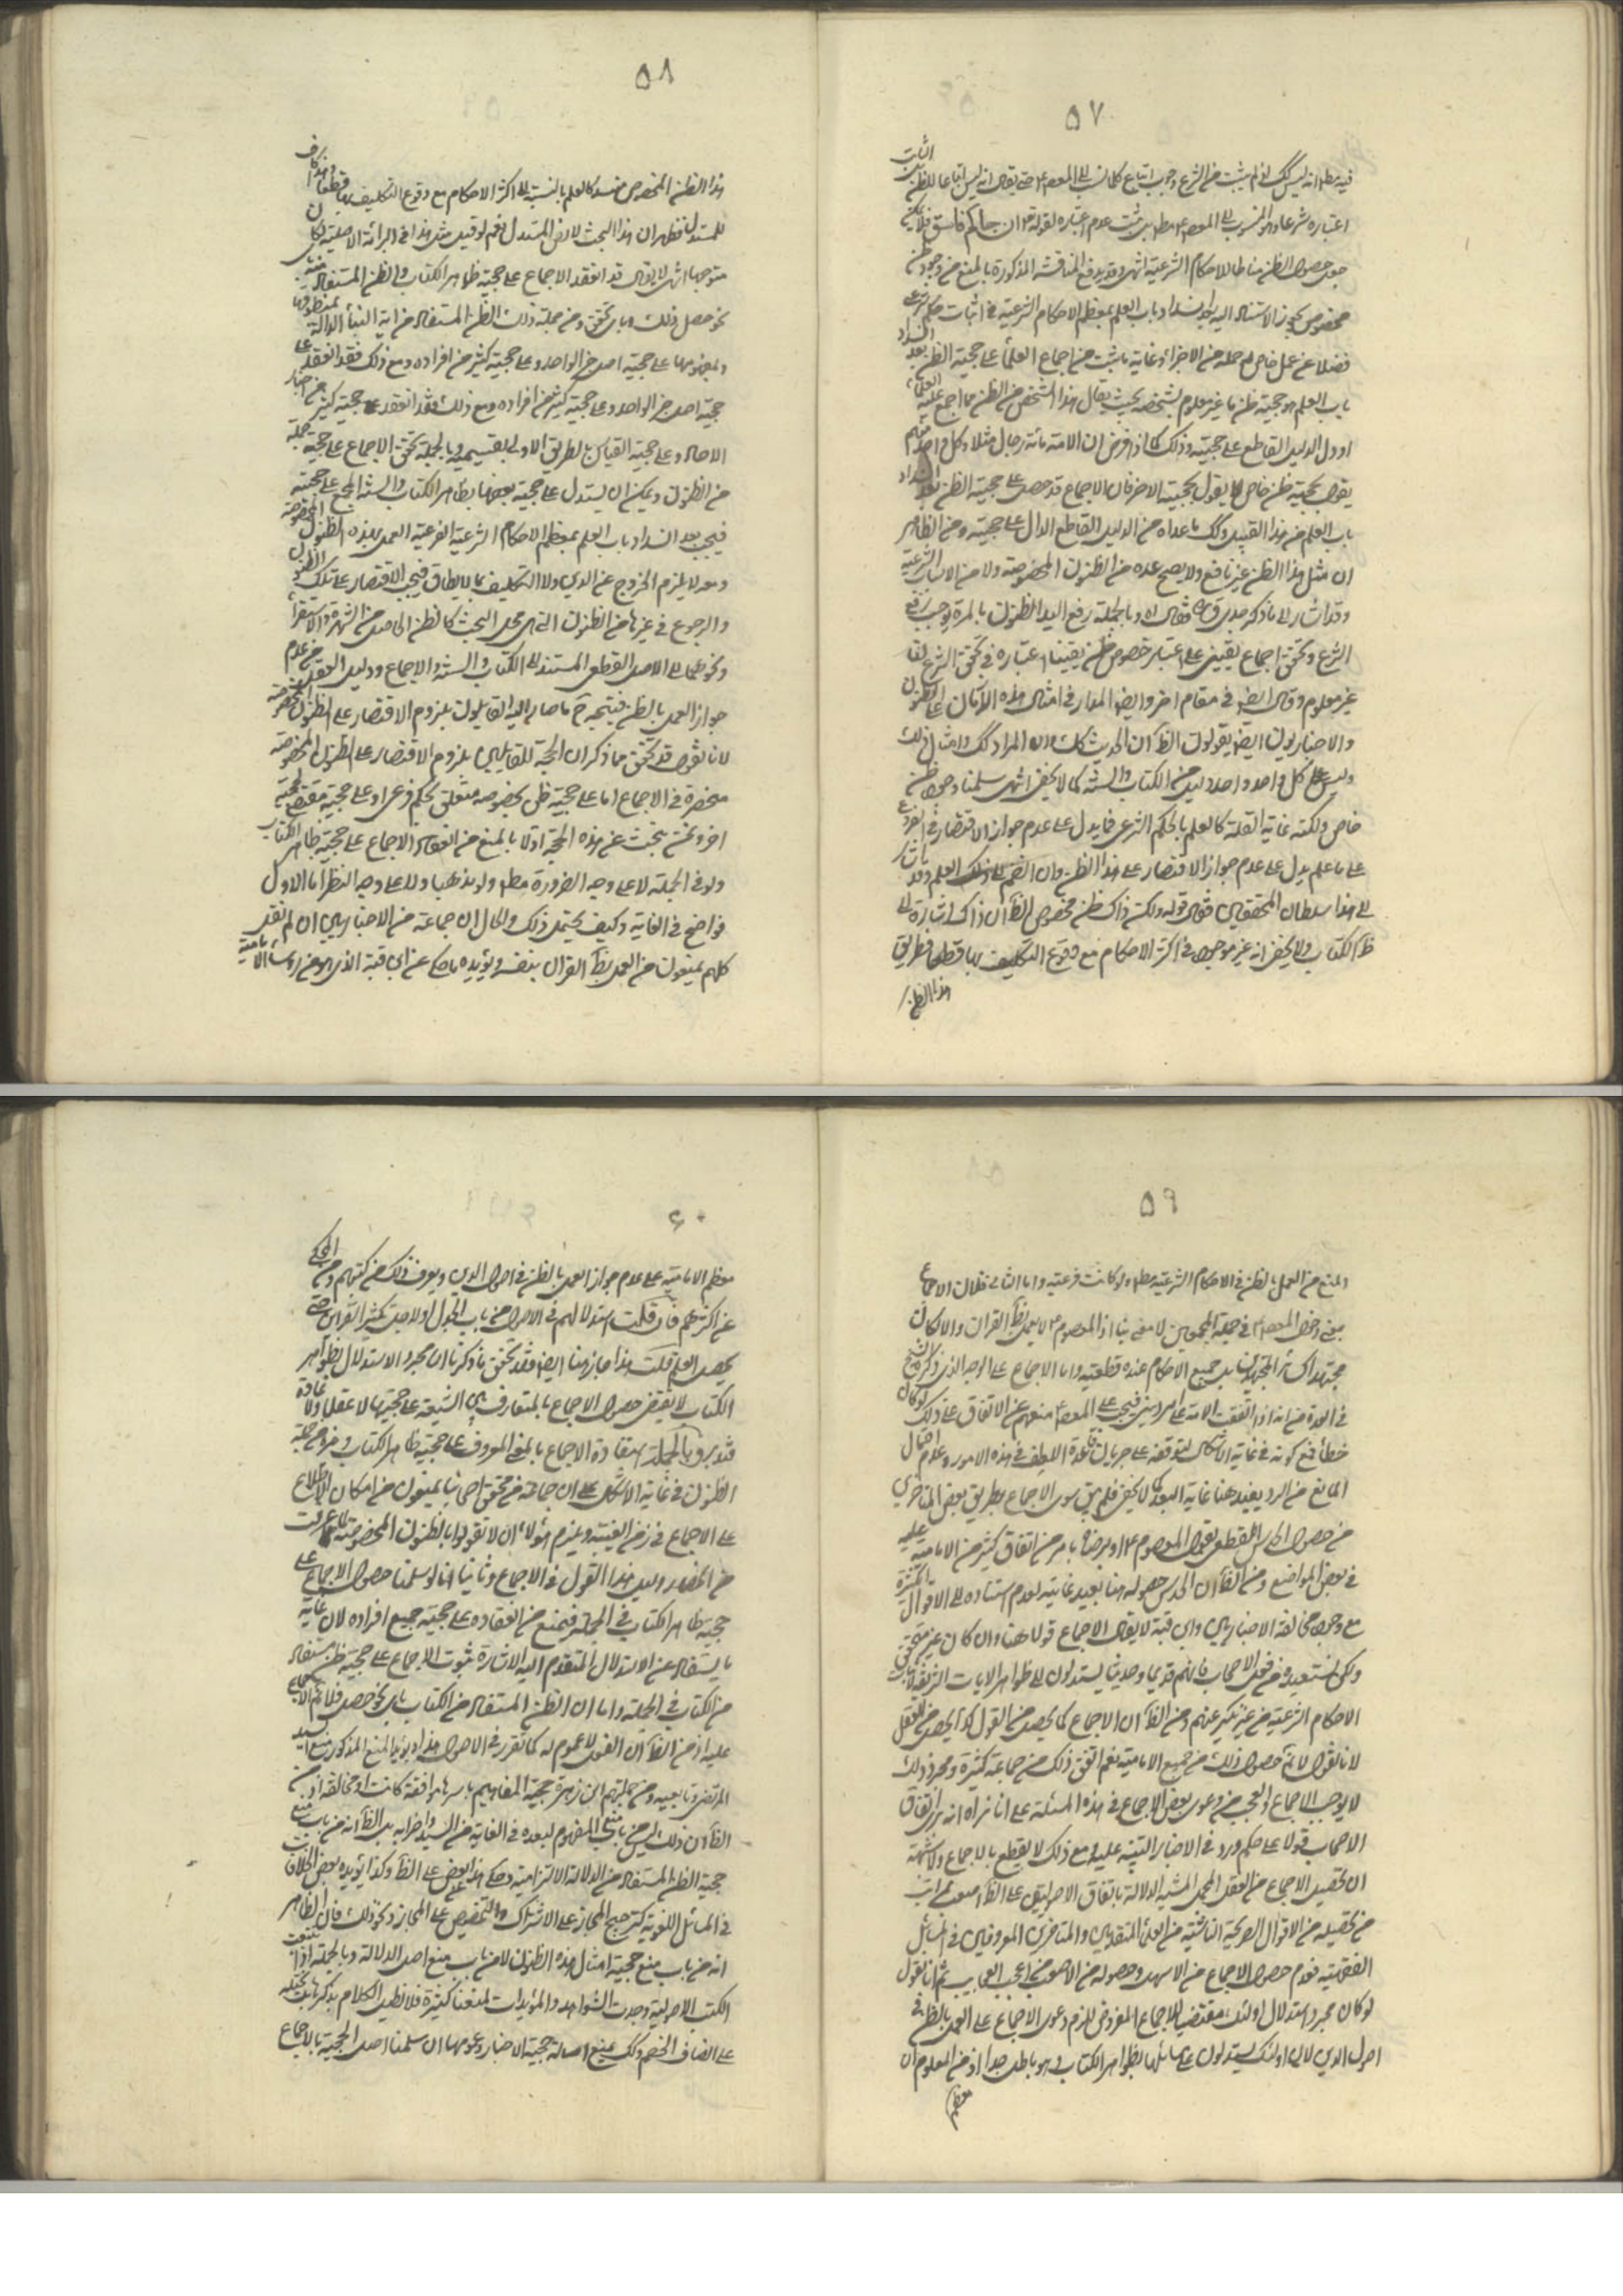 ٥٧
فيه مطلقا انه ليس كك اذ لم يثبت من الشرع وجوب اتباع كلما نسب الى المعصوم ع حتى يقال انه ليس اتباعا للظن الثابت
اعتباره شرعا والمنسوب الى المعصوم ع مطلقا بل ثبت عدم اعتباره لقوله تع ان جاءكم فاسق
جعل حصول الظن مناطا للاحكام الشرعية انتهى وقد يدفع المناقشة المذكورة بالمنع من وجود ظن
مخصوص يجوز الاستناد اليه بعد انسداد باب العلم بمعظم الاحكام الشرعية في اثبات حكم شرعي
فضلا عن عمل خاص او جملة من الاجزاء وغاية ما يثبت من اجماع العلماء على حجية الظن بعد انسداد
باب العلم هو حجية ظن ما غير معلوم بشخصه بحيث يقال هذا الشخص من الظن مما اجمع عليه العلماء
او دل الدليل القاطع على حجيته وذلك كما اذا فرض ان الامة مائة رجال مثلا وكل واحد منهم
يقول بحجية ظن خاص لا يقول بحجيته الاخر فان الاجماع قد حصل على حجية الظن بعد انسداد
باب العلم من هذا القبيل وكك ما عداه من الدليل القاطع الدال على حجيته ومن الظاهر
ان مثل هذا الظن غير نافع ولا يصح عده من الظنون المخصوصة ولا من الاسباب الشرعية
وقد اشار الى ما ذكر جدي قده فقال اه وبالجملة رفع اليد عن الظنون بالمرة يوجب رفع
الشرع وتحقق اجماع يقيني على اعتبار خصوص ظن يقينا اعتباره في تحقق الشرع لنا
غير معلوم وقال ايضا في مقام اخر وايضا المدار في امثال هذه الازمان على الظنون
والاخباريون ايضا يقولون الظ ان الحديث كك وان المراد كك وامثال ذلك
وليس على كل واحد واحد دليل من الكتاب والسنة كما لا يخفى انتهى سلمنا وجود ظن
خاص ولكنه غاية القلة كالعلم بالحكم الشرعي فما يدل على عدم جواز الاقتصار في الفروع
على ما علم يدل على عدم جواز الاقتصار على هذا الظن وان انضم الى ذلك العلم وقد اشار
الى هذا سلطان المحققين فقال قوله ولكنه ذاك ظن مخصوص الظ ان ذاك اشارة الى
ظ الكتاب ولا يخفى انه غير موجود في اكثر الاحكام مع وقوع التكليف بها قطعا فطريق
هذا الظن
٥٨
هذا الظن المخصوص منسد كالعلم بالنسبة الى اكثر الاحكام مع وقوع التكليف بها قطعا وهذا كاف
للمستدل فظهر ان هذا البحث لا يضر المستدل نعم لو قيل مثل هذا في البرائة الاصلية لكان
متوجها انتهى لا يقال قد انعقد الاجماع على حجية ظاهر الكتاب والظن المستفاد منه
نحو حصل ذلك وباي تحقق ومن جملة ذلك الظن المستفاد من اية النبأ الدالة بمنطوقها
وبمفهومها على حجية اصل خبر الواحد وعلى حجية كثير من افراده ومع ذلك فقد انعقد على
حجية اصل خبر الواحد وعلى حجية كثير من افراده ومع ذلك فقد انعقد على حجية كثير من اخبار
الاحاد وعلى حجية القياس بالطريق الاولى بقسيميه وبالجملة تحقق الاجماع على حجية جملة
من الظنون ويمكن ان يستدل على حجية بعضها بظاهر الكتاب والسنة المجمع على حجيته
فيجب بعد انسداد باب العلم بمعظم الاحكام الشرعية الفرعية العمل بهذه الظنون المخصوصة
ومعه لا يلزم الخروج عن الدين ولا التكليف بما لا يطاق فيجب الاقتصار على تلك الظنون
والرجوع في غيرها من الظنون التي هي محل البحث كالظن الحاصل من الشهرة والاستقراء
ونحوهما الى الاصل القطعي المستند الى الكتاب والسنة والاجماع ودليل العقل من عدم
جواز العمل بالظن فيتجه ح ما صار اليه القائلون بلزوم الاقتصار على الظنون المخصوصة
لانا نقول قد تحقق مما ذكر ان الحجة للقائلين بلزوم الاقتصار على الظنون المخصوصة
منحصرة في الاجماع اما على حجية ظن بخصوصه متعلق بحكم فرعي او على حجية مقتض لحجية
اخر ونحن نبحث عن هذه الحجة اولا بالمنع من انعقاد الاجماع على حجية ظاهر الكتاب
ولو في الجملة لا على وجه الضرورة مطلقا ولو مذهبا ولا على وجه النظر اما الاول
فواضح في الغاية وكيف يحتمل ذلك والحال ان جماعة من الاخباريين ان لم نقل
كلهم يمنعون من العمل بظ القران بنفسه ويؤيده ما حكي عن ابن قبة الذي هو من رؤساء الامامية
٥٩
المنع من العمل بالظن في الاحكام الشرعية مطلقا ولو كانت فرعية واما الثاني فلان الاجماع
يعني دخول المعصوم ع في جملة المجمعين لا معنى هنا اذ المعصوم ع لا يعمل بظ القران والا لكان
مجتهدا كسائر المجتهدين بل جميع الاحكام عنده قطعية واما الاجماع على الوجه الذي ذكره الشيخ
في العدة من انه اذا اتفقت الامة على امر ديني فيجب على المعصوم ع منعهم عن الاتفاق على ذلك لو كان
خطأ فمع كونه في غاية الاشكال لتوقفه على جريان قاعدة اللطف في هذه الامور وعدم احتمال
المانع من الرد يفيد هنا غاية البعد كما لا يخفى فلم يبق سوى الاجماع بطريق بعض المتأخرين
من حصول الحدس القطعي بقول المعصوم ع او برضاه بامر من اتفاق كثير من الامامية عليه
في بعض المواضع ومن الظ ان الحدس حصوله هنا بعيد غايته لعدم استناده الى الاقوال الكثيرة
مع وجود مخالفة الاخباريين وابن قبة لا يقال الاجماع قولا هنا وان كان غير متحقق
ولكن نستفيده من فعل الاصحاب فانهم قديما وحديثا يستدلون بظواهر الايات الشريفة لاثبات
الاحكام الشرعية من غير نكير عنهم ومن الظ ان الاجماع كما يحصل من القول كذا يحصل من الفعل
لانا نقول لا نم حصول ذلك من جميع الامامية نعم اتفق ذلك من جماعة كثيرة ومجرد ذلك
لا يوجب الاجماع والعجب من دعوى بعض الاجماع في هذه المسئلة على انا نراه انه يرى اتفاق
الاصحاب قولا على حكم ورد في الاخبار التنبيه عليه ومع ذلك لا يقطع بالاجماع ولا شبهة
ان تحصيل الاجماع من الفعل المجمل المشتبه الدلالة باتفاق الاصوليين على الظ اصعب بمراتب
من تحصيله من الاقوال الصريحة الناشئة من العلماء المتقدمين والمتأخرين المعروفين في المسائل
الفقهية فعدم حصول الاجماع من الاسهل وحصوله من الاصعب من اعجب العجايب ثم انا نقول
لو كان مجرد استدلال اولئك مقتضيا للاجماع المفروض للزم دعوى الاجماع على العمل بالظن في
اصول الدين لان اولئك يستدلون على مسائلها بظواهر الكتاب وهو باطل جدا اذ من المعلوم ان
معظم
٦٠
معظم الامامية على عدم جواز العمل بالظن في اصول الدين ويعرف ذلك من كتبهم ومن المحكي
عن اكثرهم فان قلت استدلالهم في الاصول من باب الجدل او لاجل تكثير القرائن حتى
يحصل العلم قلت هذا جاز هنا ايضا فقد تحقق بما ذكرنا ان مجرد الاستدلال بظواهر
الكتاب لا يقتضي حصول الاجماع بالمتعارف بين الشيعة على حجيتها لا عقلا ولا عادة
فتدبر وبالجملة استفادة الاجماع بالمعنى المعروف على حجية ظاهر الكتاب وغيره من جملة
الظنون في غاية الاشكال على ان جماعة من محققي اصحابنا يمنعون من امكان الاطلاع
على الاجماع في زمن الغيبة ويلزم هؤلاء ان لا يقولوا بالظنون المخصوصة لما عرفت
من انحصار دليل هذا القول في الاجماع وثانيا انا لو سلمنا حصول الاجماع على
حجية ظاهر الكتاب في الجملة فنمنع من انعقاده على حجية جميع افراده لان غاية
ما يستفاد عن الاستدلال المتقدم اليه الاشارة ثبوت الاجماع على حجية ظن مستفاد
من الكتاب في الجملة واما ان الظن المستفاد من الكتاب باي نحو حصل فلا نم الاجماع
عليه اذ من الظ ان الفعل لا عموم له كما تقرر في الاصول هذا ويؤيد المنع المذكور منع السيد
المرتضى وتابعيه ومن جملتهم ابن زهرة حجية المفاهيم باسرها موافقة كانت او مخالفة اذ من
الظ ان ذلك ليس من باب منع المفهوم لبعده في الغاية من السيد واضرابه بل الظ انه من باب منع
حجية الظن المستفاد من الدلالة الالتزامية وحكى هذا بعض على الظ وكذا يؤيده بعض الخلاف
في المسائل اللغوية كترجيح المجاز على الاشتراك والتخصيص على المجاز ونحو ذلك فان الظاهر
انه من باب منع حجية امثال هذه الظنون لا من باب منع اصل الدلالة وبالجملة اذا تتبعت
الكتب الاصولية وجدت الشواهد والمؤيدات لمنعنا كثيرة فلا نطيل الكلام بذكرها
على انصاف الخصم وكك نمنع اصالة حجية الاخبار وعمومها ان سلمنا اصل الحجية بالاجماع